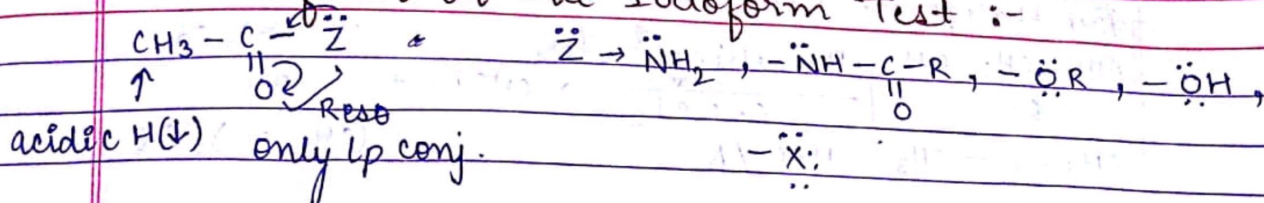 Iodoform Test :-
CH3 - C - Z̈ Z̈ → N̈H2 , - N̈H - C - R , - ÖR , - ÖH ,
↑ || O Reso || O
acidic H(↓) only lp conj. - Ẍ: